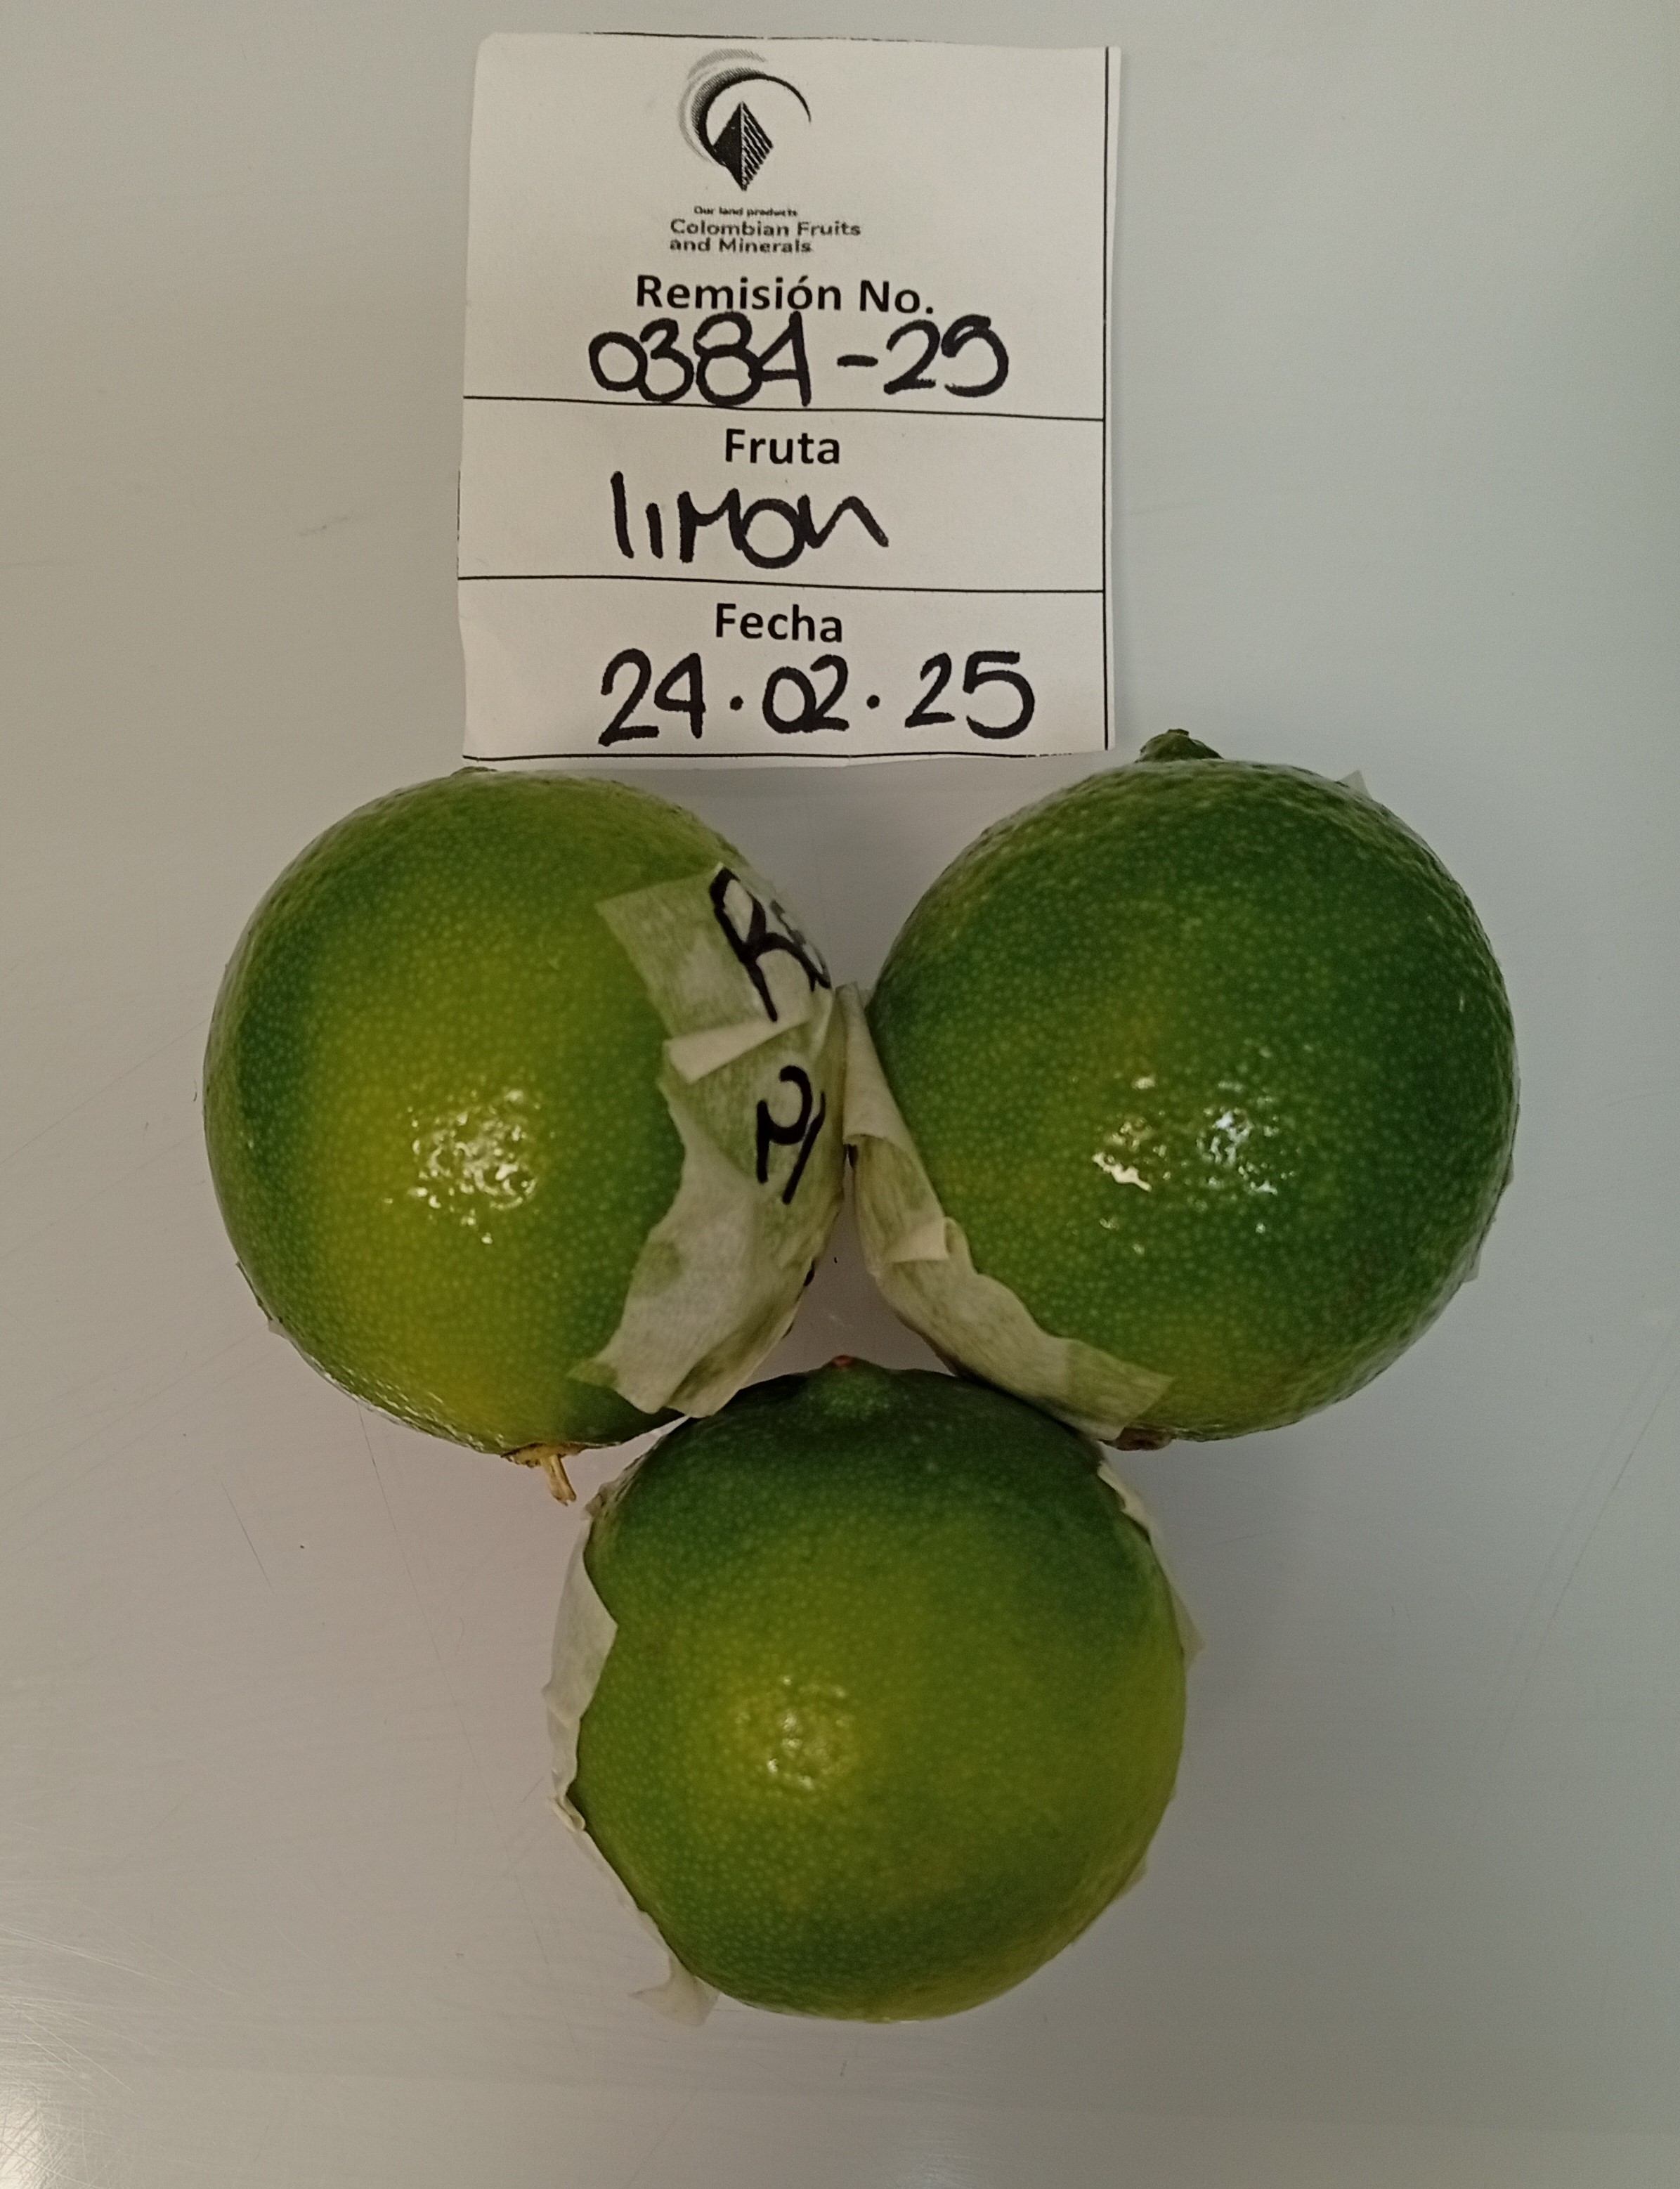 Our land products
Colombian Fruits
and Minerals
Remisión No.
0384-25
Fruta
limon
Fecha
24.02.25